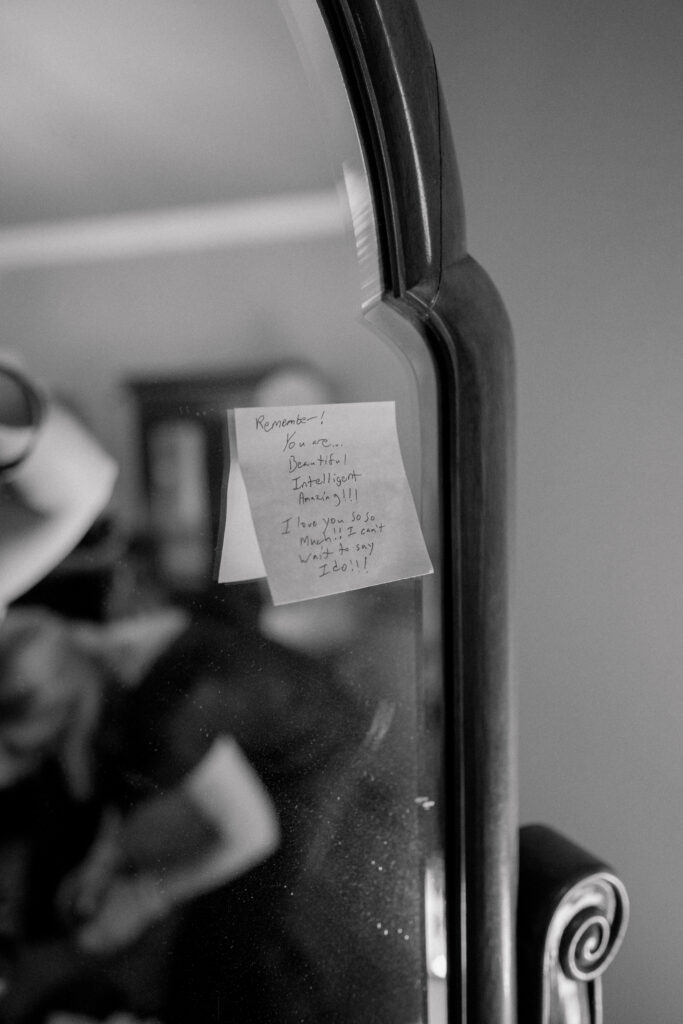 Remember!
You are...
Beautiful
Intelligent
Amazing!!!
I love you so so
Much!! I can't
wait to say
I do!!!